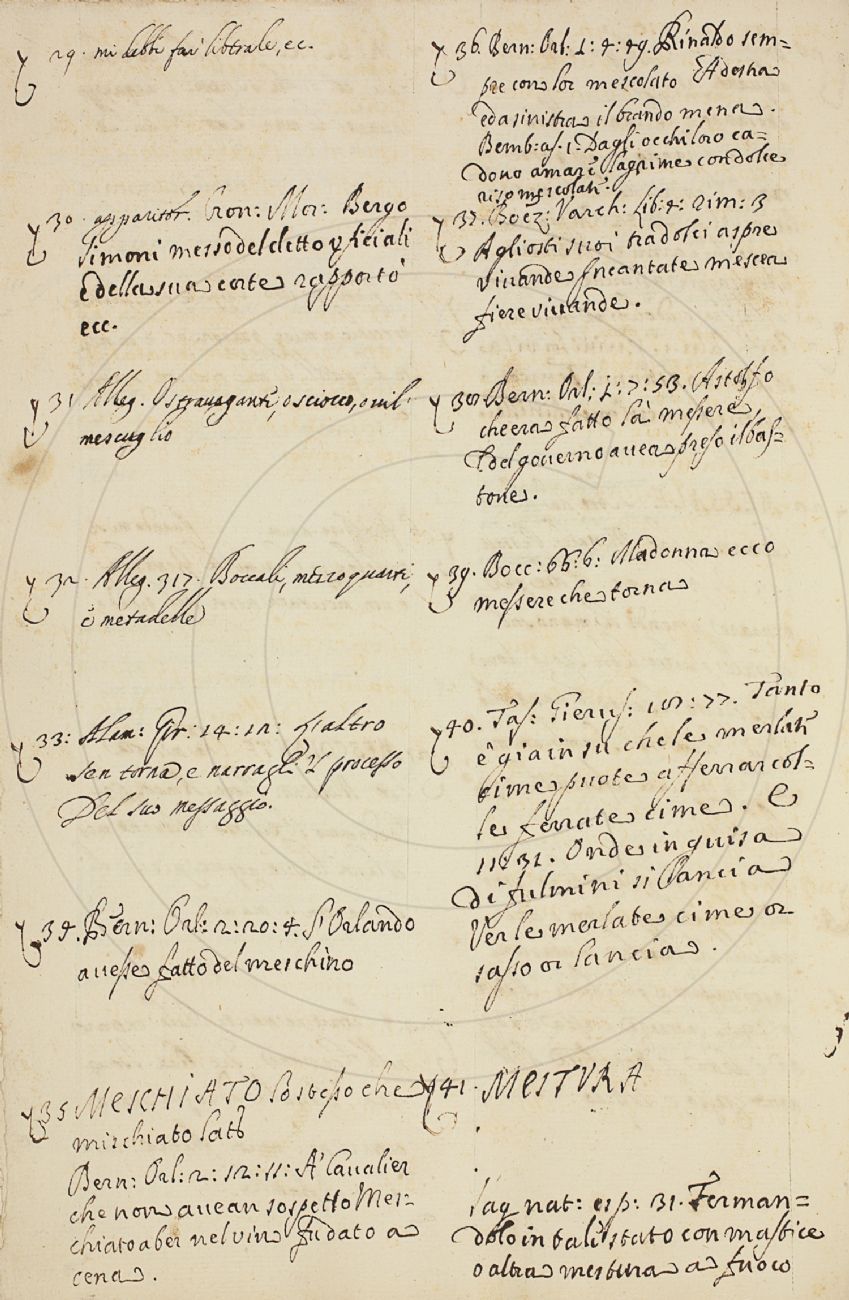 29. mi debbi far liberale, ec.
30. apparitor. Cron: Mor: Bergo
Simoni messo del detto uficiali
E della sua corte rapportò
ecc.
31 Alleg. O stravaganti, o sciocco, o vil
mescuglio
32. Alleg. 317. Boccali, mezzo quarti,
e metadelle
33: Alam: Gir: 14: 12:
sen torna, e narragli il processo
Del suo messaggio.
34. Bern: Orl: 2: 20: 4. S'Orlando
avesse fatto del meschino
35 MESCHIATO lo stesso che
mischiato
Bern: Orl: 2: 12: 11: A' Cavalier
che non avean sospetto Mes-
chiato a ber nel vin fu dato a
cena.
36. Bern: Orl: 1: 4: 49. Rinaldo sem=
pre con lor mescolato E A destra
ed a sinistra il brando mena.
Bemb: as. 1. Dagli occhi loro ca=
dono amare lagrime con dolce
riso mescolate.
37. Boez: Varch: lib: 4: rim: 3
Agli osti suoi tra dolci aspre
vivande Incantate mescea
fiere vivande.
38 Bern: Orl: 1: 7: 53. Astolfo
che era fatto là messere,
E del governo avea preso il bas=
tone.
39. Bocc: 66: 6: Madonna ecco
messere che torna
40. Tas: Gierus: 18: 77. Tanto
è gia in su che le merlate
cime puote afferrar col=
le ferrate cime. E
11: 31. Onde in guisa
di fulmini si lancia
Ver le merlate cime or
sasso or lancia.
41. MESTURA
.
.
Sag. nat: esp: 31. Ferman=
dolo in tale stato con mastice
o altra mestura a fuoco